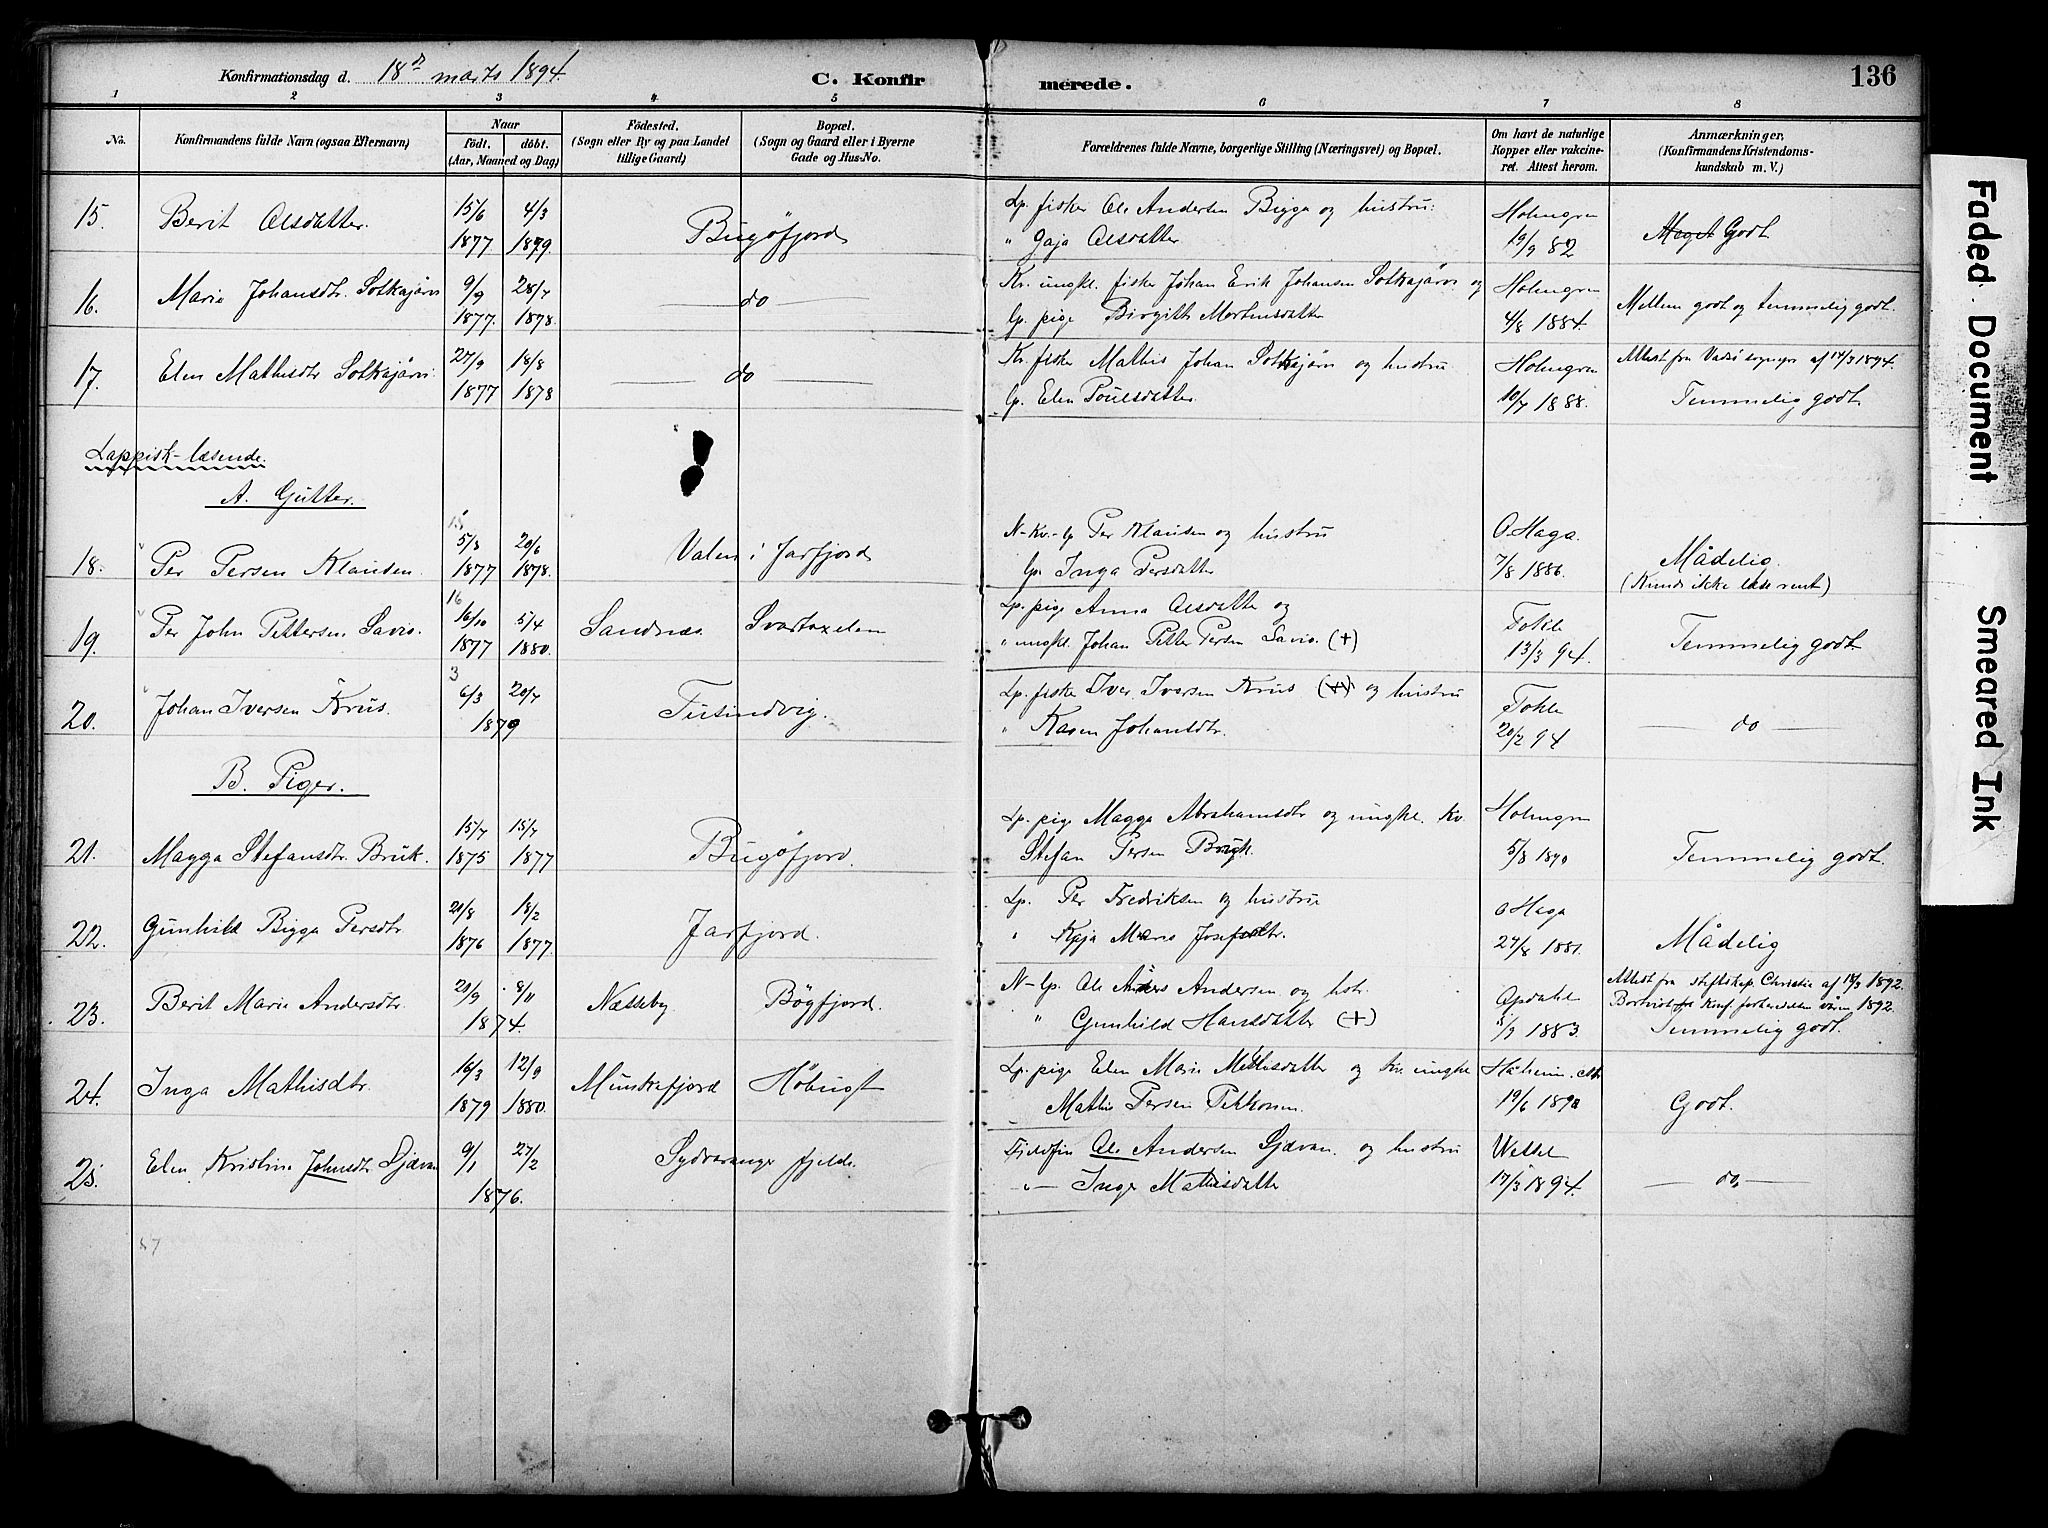 Konfirmationsdag d. 18de marts 1894.
C. Konfirmerede.
136
1 2 3 4 5 6 7 8
No.
Konfirmandens fulde Navn (ogsaa Efternavn)
Naar
födt. döbt.
(Aar, Maaned og Dag)
Födested.
(Sogn eller By og paa Landet tillige Gaard)
Bopæl.
(Sogn og Gaard eller i Byerne Gade og Hus-No.
Forældrenes fulde Navne, borgerlige Stilling (Næringsvei) og Bopæl.
Om havt de naturlige Kopper eller vaccineret. Attest herom.
Anmærkninger,
(Konfirmandens Kristendomskundskab m. V.)
15. Berit Olsdatter. 15/6 1877 4/3 1879 Bugöfjord
Lp. fisker Ole Andersen Bigga og hustru:
" Gaja Olsdatter
Holmgren 19/9 82
Meget Godt.
16. Marie Johansdtr. Sotkajärvi 9/9 1877. 28/7 1878. do
Kv. ungkl. fisker Johan Erik Johansen Sotkajärvi og
lp. pige Birgitte Mortensdatter
Holmgren 4/8 1884.
Mellem godt og temmelig godt.
17. Elen Mathisdtr Sotkajärvi. 27/9 1877 18/8 1878 do
Kv. fisker Mathis Johan Sotkajärvi og hustru
lp. Elen Poulsdatter.
Holmgren 10/7 1888.
Attest fra Vadsö sogнepr. af 14/3 1894.
Temmelig godt.
Lappisk-læsende.
A. Gutter.
18. Per Persen Klausen. 5/3 1877 20/6 1878. Valen i Jarfjord
N-Kv.-lp Per Klausen og hustru
lp. Inga Persdatter
O Haga. 7/8 1886.
Mådelig.
(Kunde ikke læse rent)
19. Per John Pettersen Savio. 16 16/10 1877 5/4 1880. Sandnæs Svartaxelen
Lp. pige Anna Olsdatter og
" ungkl. Johan Petter Persen Savio. (+)
Tokle 13/3 94.
Temmelig godt.
20. Johan Iversen Krus. 3 6/3 20/7 1879 Tusindvig.
Lp. fisker Iver Iversen Krus (+) og hustru
" Karen Johansdtr.
Tokle 20/2 94
do
B. Piger.
21. Magga Stefansdtr. Bruk. 15/7 1875 15/7 1877 Bugöfjord.
Lp. pige Magga Abrahamsdtr og ungkl. Kv.
Stefan Persen Bruk.
Holmgren 5/8 1890
Temmelig godt.
22. Gunhild Bigga Persdtr 20/8 1876 18/2 1877. Jarfjord.
Lp. Per Fredriksen og hustru
" Kaja Marie Josefsdtr.
O Haga 27/8 1881.
Mådelig
23. Berit Marie Andersdtr. 20/9 8/11 1874. Næsseby Bögfjord.
N-lp. Ole Anders Andersen og hstr.
" Gunhild Hansdatter (+)
Opdahl /9 1883.
Attest fra stiftskap. Christie af 14/3 1892.
Bortvist fra konf. forberedelsen våren 1892.
Temmelig godt.
24. Inga Mathisdtr. 16/3 1879 12/9 1880. Munkefjord Höbugt
Lp. pige Elen Marie Mathisdatter og kv. ungkl
Mathis Persen Pekkonen.
19/6 1890
Godt.
25. Elen Kristine Johnsdtr Sjævan 9/1 27/2 1876. Sydvaranger fjelde.
Fjeldfin Ole Andersen Sjævan. og hustru
" Inger Mathisdatter
Wessel 17/3 1894.
do.
Faded Document
Smeared Ink